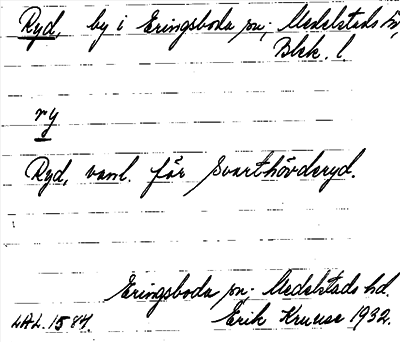 Ryd, by i Eringsboda sn; Medelstads hd,
Blek. l.
ry
Ryd, vanl. för Svarthövderyd.
Eringsboda sn. Medelstads hd.
LAL. 1587. Erik Kruuse 1932.